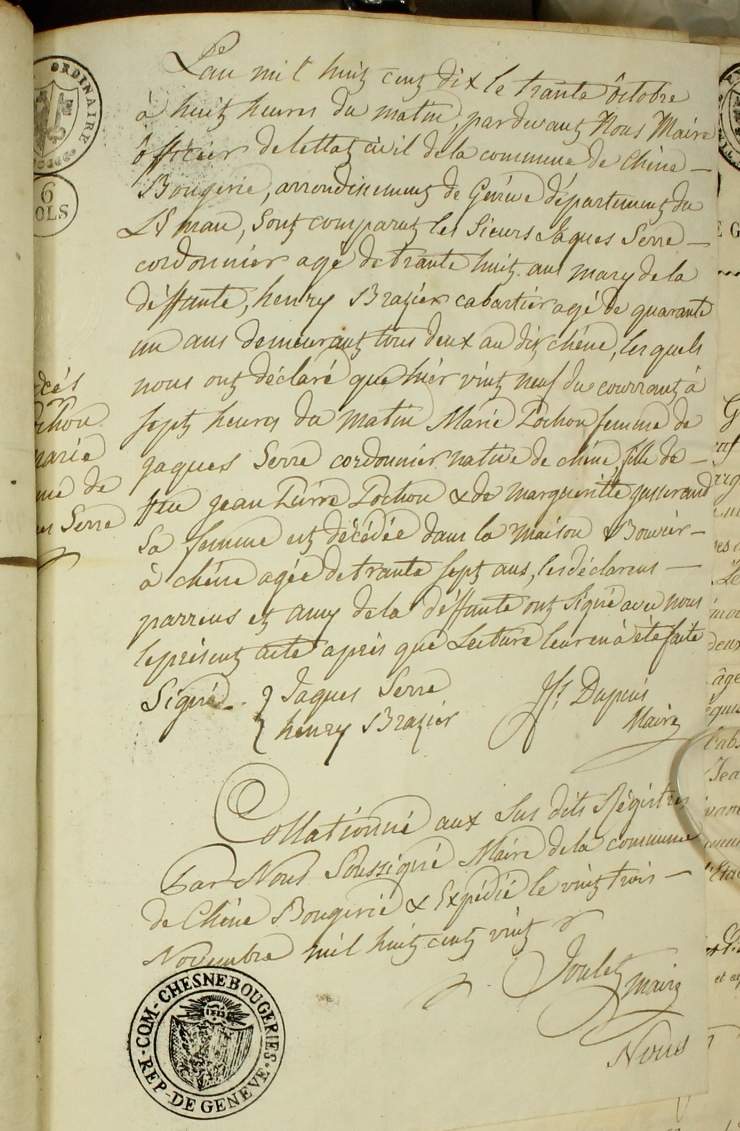 ORDINAIRE
6
OLS
L'an mil huit cent dix le trante Octobre
à huit heures du matin, pardevant Nous Maire
officier de lettat civil de la commune de Chêne —
Bougerie, arrondissement de Genève département du
Léman, Sont comparut les Sieurs Jaques Serre —
cordonnier agé de trante huit ans mary de la
déffunte, henry Brazier cabartier agé de quarante
un ans demeurant tous deux au dit chêne, lesquels
nous ont déclaré que hièr vint neuf du courrant à
Sept heures du matin Marie Pochon femme de
jaques Serre cordonnier native de chêne, fille de —
feu jean Pierre Pochon & de margueritte jusserand
Sa femme est décédée dans la maison Bouvier —
à chêne agée de trante Sept ans, les déclarens —
parrens et amy de la déffunte ont Signé avec nous
le présent acte après que Lecture leur en à été faite
Signé. } Jaques Serre
henry Brazier
Dupuis
Maire
Collationné aux Sus dits Régistres
Par Nous Soussigné Maire de la commune
de Chêne Bougerie & Expédié le vingt trois —
Novembre mil huit cent vint
Maire
Nous
COM-CHESNEBOUGERIES
REP-DE GENEVE
cés
chon
marie
me de
Serre